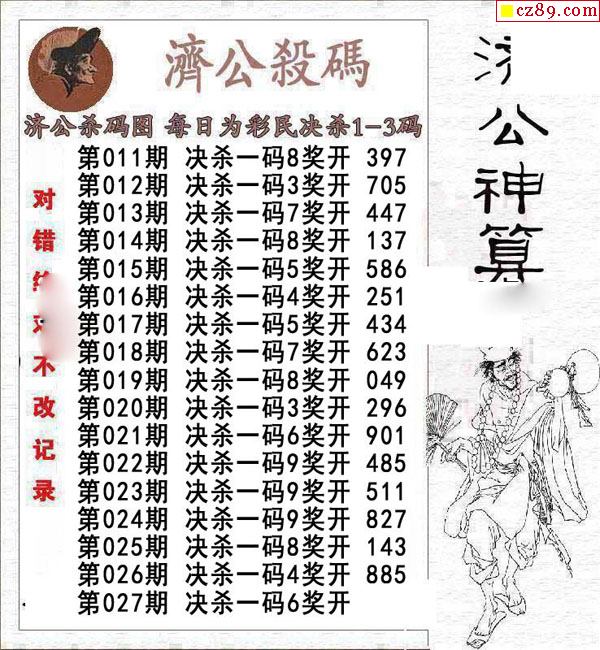 cz89.com
濟公殺碼
济公杀码图 每日为彩民决杀1-3码
第011期 决杀一码8奖开 397
第012期 决杀一码3奖开 705
第013期 决杀一码7奖开 447
第014期 决杀一码8奖开 137
第015期 决杀一码5奖开 586
第016期 决杀一码4奖开 251
第017期 决杀一码5奖开 434
第018期 决杀一码7奖开 623
第019期 决杀一码8奖开 049
第020期 决杀一码3奖开 296
第021期 决杀一码6奖开 901
第022期 决杀一码9奖开 485
第023期 决杀一码9奖开 511
第024期 决杀一码9奖开 827
第025期 决杀一码8奖开 143
第026期 决杀一码4奖开 885
第027期 决杀一码6奖开
对错 不改记录
公神算